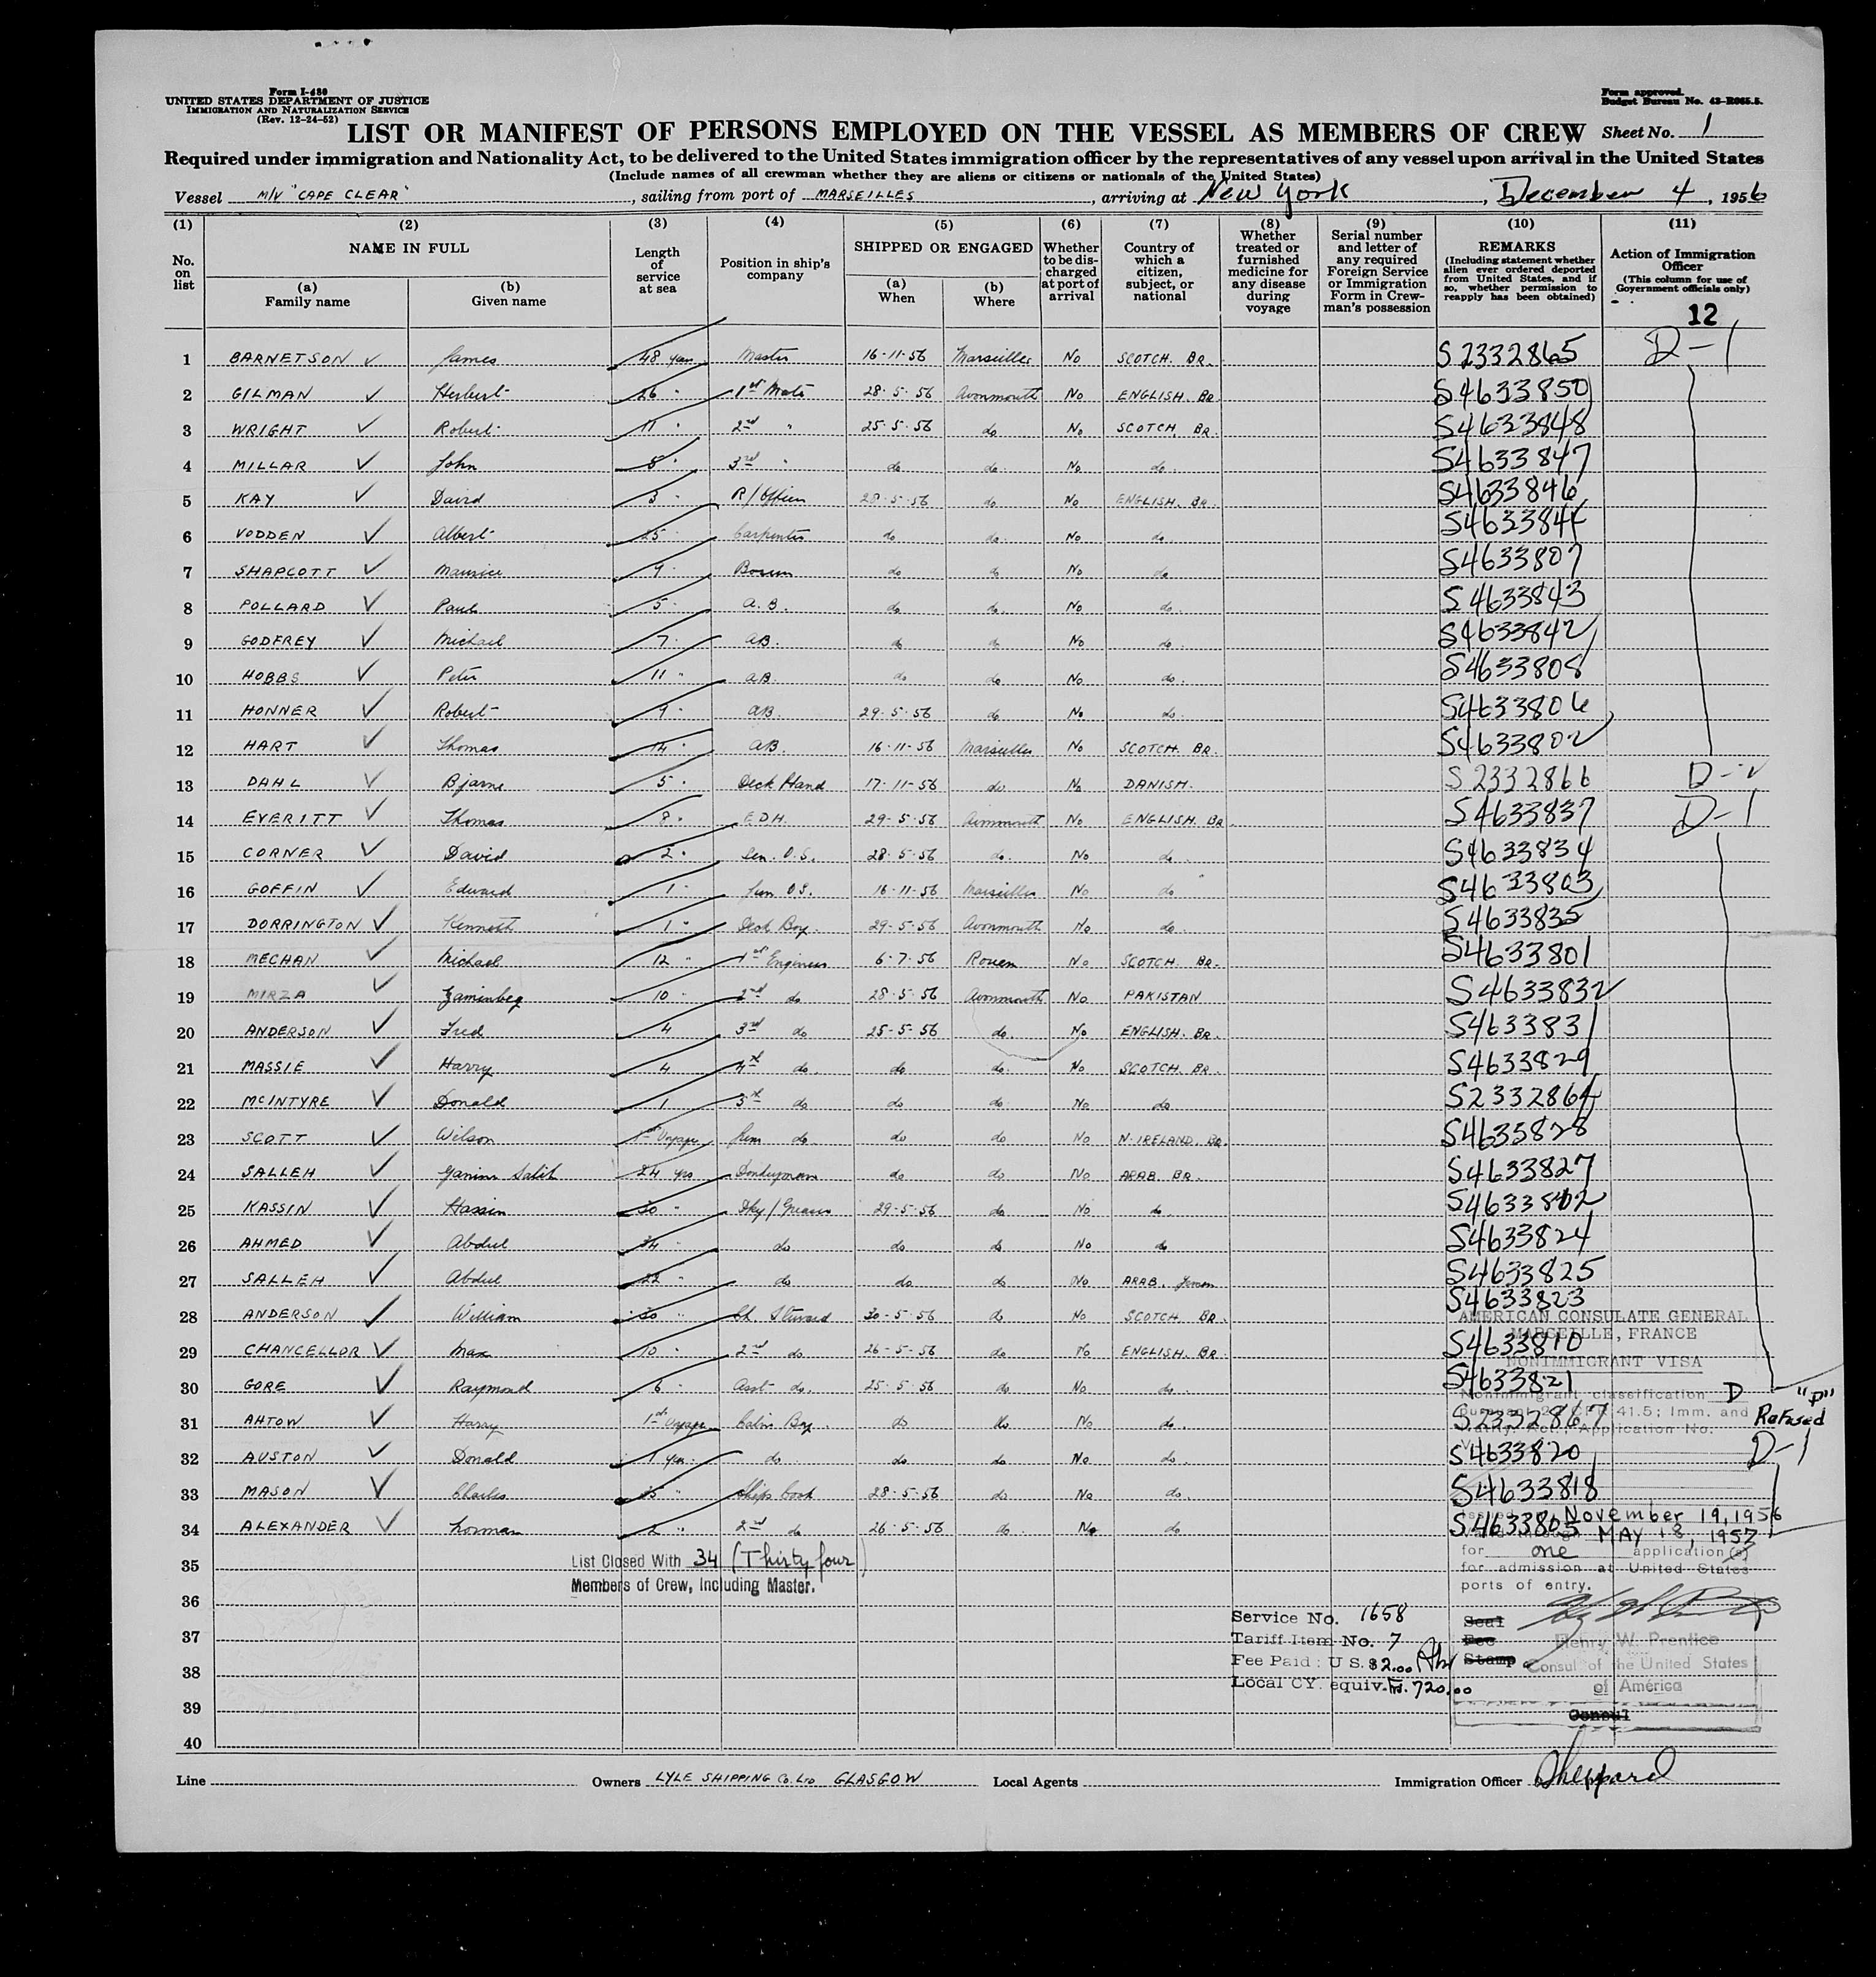 Form I-480
UNITED STATES DEPARTMENT OF JUSTICE
IMMIGRATION AND NATURALIZATION SERVICE
(Rev. 12-24-52)
Form approved.
Budget Bureau No. 43-R065.5.
LIST OR MANIFEST OF PERSONS EMPLOYED ON THE VESSEL AS MEMBERS OF CREW Sheet No. 1
Required under immigration and Nationality Act, to be delivered to the United States immigration officer by the representatives of any vessel upon arrival in the United States
(Include names of all crewman whether they are aliens or citizens or nationals of the United States)
Vessel M/V "CAPE CLEAR", sailing from port of MARSEILLES, arriving at New York, December 4, 1956
(1) No. on list
(2) NAME IN FULL (a) Family name (b) Given name
(3) Length of service at sea
(4) Position in ship's company
(5) SHIPPED OR ENGAGED (a) When (b) Where
(6) Whether to be discharged at port of arrival
(7) Country of which a citizen, subject, or national
(8) Whether treated or furnished medicine for any disease during voyage
(9) Serial number and letter of any required Foreign Service or Immigration Form in Crewman's possession
(10) REMARKS (Including statement whether alien ever ordered deported from United States, and if so, whether permission to reapply has been obtained)
(11) Action of Immigration Officer (This column for use of Government officials only)
12
1 BARNETSON ✓ James 48 years Master 16-11-56 Marseilles No SCOTCH. BR. S2332865 D-1
2 GILMAN ✓ Herbert 26 " 1st Mate 28-5-56 Avonmouth No ENGLISH. BR. S4633850
3 WRIGHT ✓ Robert 11 " 2nd " 25-5-56 do No SCOTCH. BR. S4633848
4 MILLAR ✓ John 8 " 3rd " do do No do. S4633847
5 KAY ✓ David 3 " R/Officer 28-5-56 do No ENGLISH. BR. S4633846
6 VODDEN ✓ Albert 25 " Carpenter do do No do. S4633844
7 SHAPCOTT ✓ Maurice 9 " Bosun do do No do S4633807
8 POLLARD ✓ Paul 5 " A.B. do do. No do. S4633843
9 GODFREY ✓ Michael 7 " AB. do do No do. S4633842
10 HOBBS ✓ Peter 11 " AB. do do No do. S4633808
11 HONNER ✓ Robert 9 " AB. 29-5-56 do No do. S4633806
12 HART ✓ Thomas 14 " AB. 16-11-56 Marseilles No SCOTCH. BR. S4633802
13 DAHL ✓ Bjarne 5 " Deck Hand 17-11-56 do No DANISH. S2332866
14 EVERITT ✓ Thomas 8 " E.D.H. 29-5-56 Avonmouth No ENGLISH. BR. S4633837 D-1
15 CORNER ✓ David 2 " Sen. O.S. 28-5-56 do. No do. S4633834
16 GOFFIN ✓ Edward 1 " Jun. O.S. 16-11-56 Marseilles No do S4633803
17 DORRINGTON ✓ Kenneth 1 " Deck Boy. 29-5-56 Avonmouth No do. S4633835
18 MECHAN ✓ Michael 12 " 1st Engineer 6-7-56 Rouen No SCOTCH. BR. S4633801
19 MIRZA ✓ Zaminbeg 10 " 2nd do 28-5-56 Avonmouth No PAKISTAN S4633832
20 ANDERSON ✓ Fred 4 3rd do 25-5-56 do. No ENGLISH. BR. S4633831
21 MASSIE ✓ Harry 4 4th do. do do. No SCOTCH. BR. S4633829
22 McINTYRE ✓ Donald 1 5th do do do No do S2332864
23 SCOTT ✓ Wilson 1st Voyage Jun do do do No N. IRELAND. BR. S4633828
24 SALLEH ✓ Ganim Salih 24 yrs Donkeyman do do No ARAB. BR. S4633827
25 KASSIN ✓ Hassin 30 " Dky/Greaser 29-5-56 do No do S4633802
26 AHMED ✓ Abdul 34 " do do do No do S4633824
27 SALLEH ✓ Abdul 22 " do do do No ARAB. Yemen S4633825
28 ANDERSON ✓ William 30 " Ch. Steward 30-5-56 do No SCOTCH. BR. S4633823
29 CHANCELLOR ✓ Max 10 " 2nd do 26-5-56 do No ENGLISH. BR. S4633810
30 GORE ✓ Raymond 6 " Asst do. 25-5-56 do No do. S4633821
31 AHTOW ✓ Harry 1st Voyage Cabin Boy. do do No do. S2332867 "D" Refused
32 AUSTON ✓ Donald 1 year do do do No do. S4633820 D-1
33 MASON ✓ Charles 25 " Ships Cook 28-5-56 do No do. S4633818
34 ALEXANDER ✓ Norman 2 " 2nd do 26-5-56 do. No do S4633805
35
36
37
38
39
40
List Closed With 34 (Thirty four)
Members of Crew, Including Master.
AMERICAN CONSULATE GENERAL
MARSEILLE, FRANCE
NONIMMIGRANT VISA
Nonimmigrant classification D
pursuant 22 CFR 41.5; Imm. and
Natly. Act.; Application No.
November 19, 1956
MAY 18, 1957
for one application(s)
for admission at United States
ports of entry.
Seal
Fee
Stamp
Henry W. Prentice
Consul of the United States
of America
Consul
Service No. 1658
Tariff Item No. 7
Fee Paid: U S. $2.00
Local CY. equiv. Fr. 720.00
Line Owners LYLE SHIPPING Co. LTD GLASGOW Local Agents Immigration Officer Sheppard